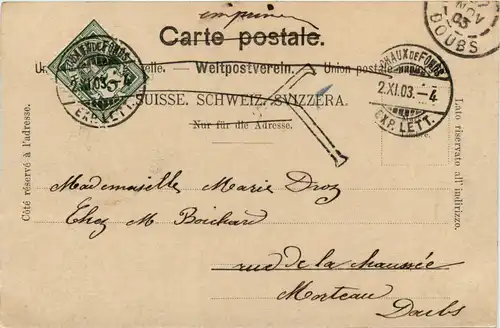 imprimé
Carte postale.
Weltpostverein. Union postale
SUISSE. SCHWEIZ. SVIZZERA.
Nur für die Adresse.
CHAUX DE FONDS
2.XI.03. 4
EXP. LETT.
CHAUX DE FONDS
2.XI.03. 4
EXP. LETT.
NOV
03
DOUBS
Côté réservé à l'adresse.
Lato riservato all'indirizzo.
Mademoiselle Marie Droz
Chez M Boichard
rue de la Chaussée
Morteau
Doubs